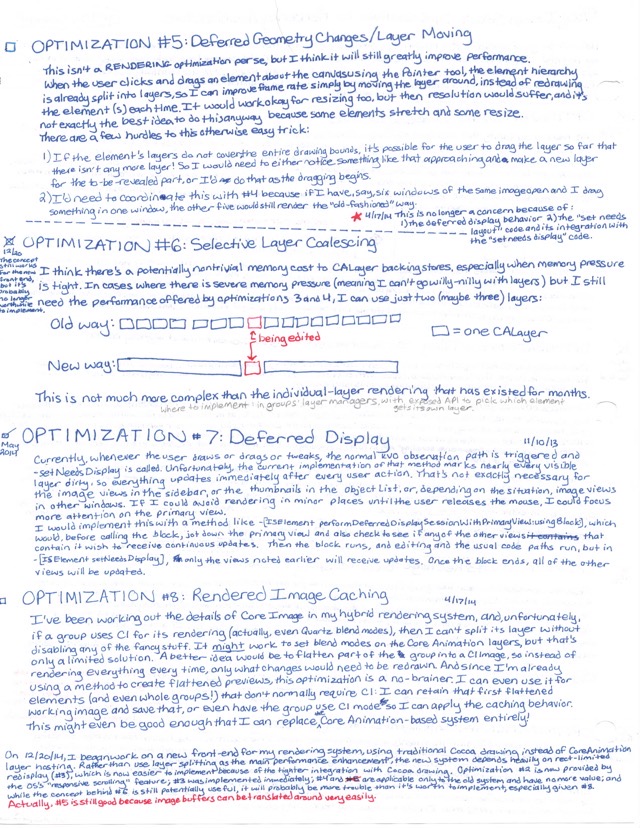 OPTIMIZATION #5: Deferred Geometry Changes/Layer Moving
This isn't a RENDERING optimization per se, but I think it will still greatly improve performance.
When the user clicks and drags an element about the canvas using the Pointer tool, the element hierarchy
is already split into layers, so I can improve frame rate simply by moving the layer around, instead of redrawing
the element(s) each time. It would work okay for resizing too, but then resolution would suffer, and it's
not exactly the best idea to do this anyway because some elements stretch and some resize.
There are a few hurdles to this otherwise easy trick:
1) If the element's layers do not cover the entire drawing bounds, it's possible for the user to drag the layer so far that
there isn't any more layer! So I would need to either notice something like that approaching and make a new layer
for the to-be-revealed part, or I'd do that as the dragging begins.
2) I'd need to coordinate this with #4 because if I have, say, six windows of the same image open and I drag
something in one window, the other five would still render the "old-fashioned" way.
★ 4/17/14 This is no longer a concern because of:
1) the deferred display behavior 2) the "set needs
layout" code and its integration with
the "set needs display" code.
OPTIMIZATION #6: Selective Layer Coalescing
12/20
The concept
still works
for the new
front end,
but it's
probably
no longer
worthwhile
to implement.
I think there's a potentially nontrivial memory cost to CALayer backing stores, especially when memory pressure
is tight. In cases where there is severe memory pressure (meaning I can't go willy-nilly with layers) but I still
need the performance offered by optimizations 3 and 4, I can use just two (maybe three) layers:
Old way:
being edited
= one CALayer
New way:
This is not much more complex than the individual-layer rendering that has existed for months.
where to implement: in groups' layer managers, with exposed API to pick which element
gets its own layer.
May
2014
OPTIMIZATION #7: Deferred Display 11/10/13
Currently, whenever the user draws or drags or tweaks, the normal KVO observation path is triggered and
-setNeedsDisplay is called. Unfortunately, the current implementation of that method marks nearly every visible
layer dirty, so everything updates immediately after every user action. That's not exactly necessary for
the image views in the sidebar, or the thumbnails in the object List, or, depending on the situation, image views
in other windows. If I could avoid rendering in minor places until the user releases the mouse, I could focus
more attention on the primary view.
I would implement this with a method like -[ISElement performDeferredDisplaySessionWithPrimaryView:usingBlock], which
would, before calling the block, jot down the primary view and also check to see if any of the other views it contains that
contain it wish to receive continuous updates. Then the block runs, and editing and the usual code paths run, but in
-[ISElement setNeedsDisplay], only the views noted earlier will receive updates. Once the block ends, all of the other
views will be updated.
OPTIMIZATION #8: Rendered Image Caching 4/17/14
I've been working out the details of Core Image in my hybrid rendering system, and, unfortunately,
if a group uses CI for its rendering (actually, even Quartz blend modes), then I can't split its layer without
disabling any of the fancy stuff. It might work to set blend modes on the Core Animation layers, but that's
only a limited solution. A better idea would be to flatten part of the group into a CI image, so instead of
rendering everything every time, only what changes would need to be redrawn. And since I'm already
using a method to create flattened previews, this optimization is a no-brainer. I can even use it for
elements (and even whole groups!) that don't normally require CI: I can retain that first flattened
working image and save that, or even have the group use CI mode so I can apply the caching behavior.
This might even be good enough that I can replace Core Animation-based system entirely!
On 12/20/14, I began work on a new front-end for my rendering system, using traditional Cocoa drawing instead of CoreAnimation
layer hosting. Rather than use layer splitting as the main performance enhancement, the new system depends heavily on rect-limited
redisplay (#3), which is now easier to implement because of the tighter integration with Cocoa drawing. Optimization #2 is now provided by
the OS's "responsive scrolling" feature; #3 was implemented immediately; #4 and #5 are applicable only to the old system and have no more value; and
while the concept behind #6 is still potentially useful, it will probably be more trouble than it's worth to implement, especially given #8.
Actually, #5 is still good because image buffers can be translated around very easily.